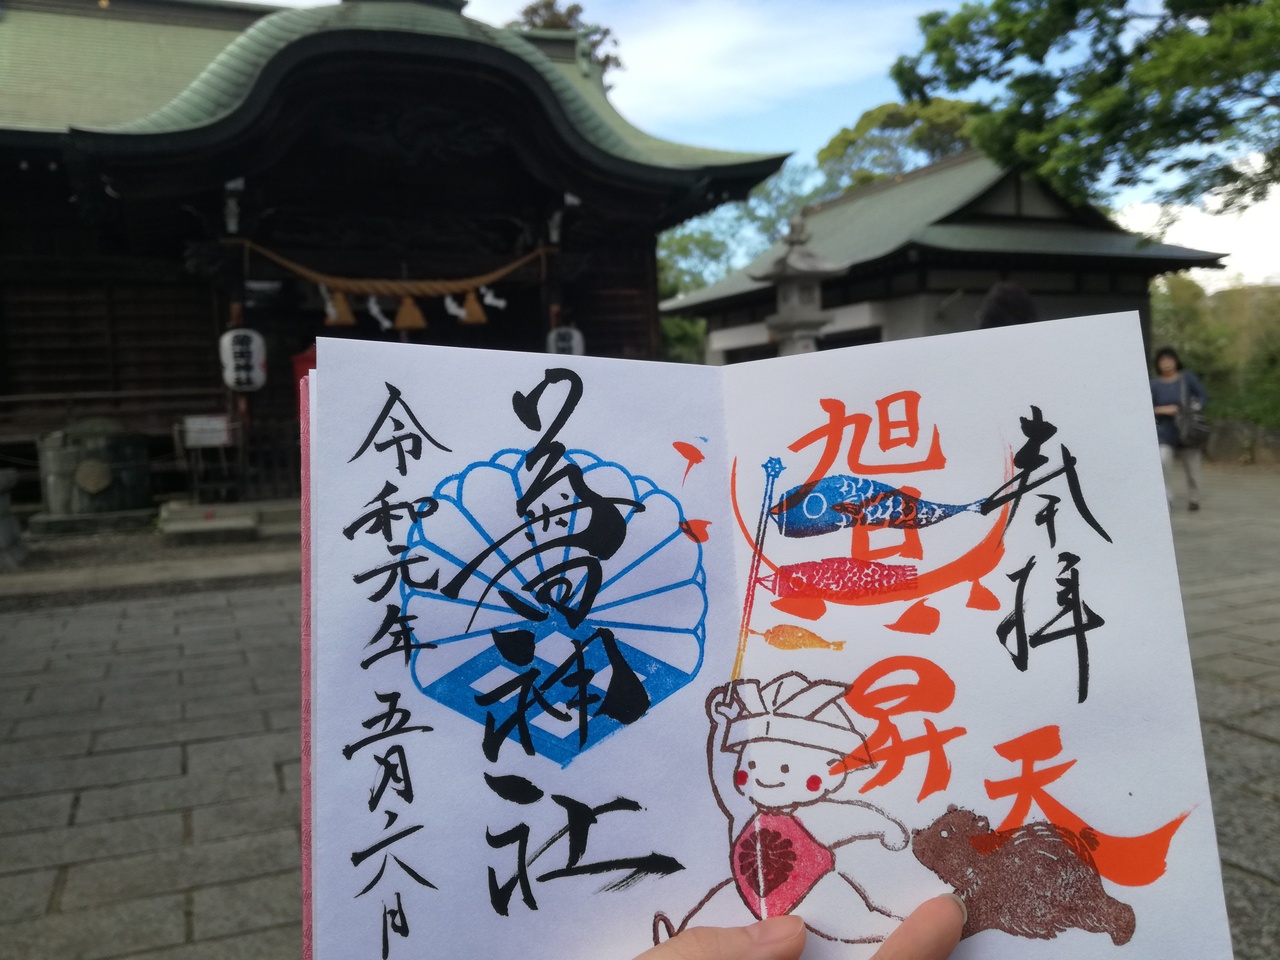 奉拝
旭日昇天
神社
令和元年五月六日